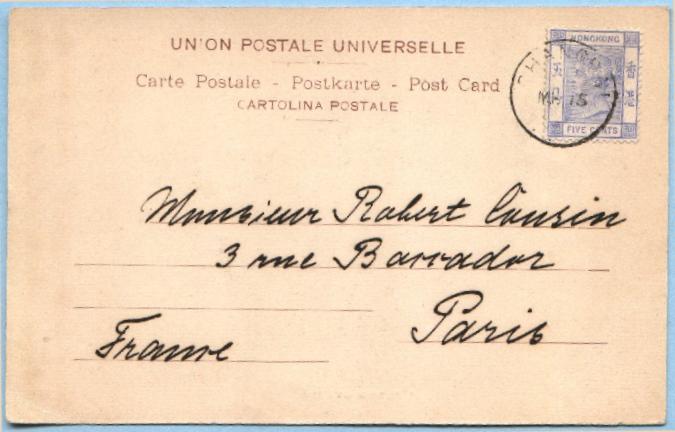 UNION POSTALE UNIVERSELLE
Carte Postale - Postkarte - Post Card
CARTOLINA POSTALE
HONGKONG
香港
FIVE CENTS
MR 15
Monsieur Robert Cousin
3 rue Barrador
Paris
France